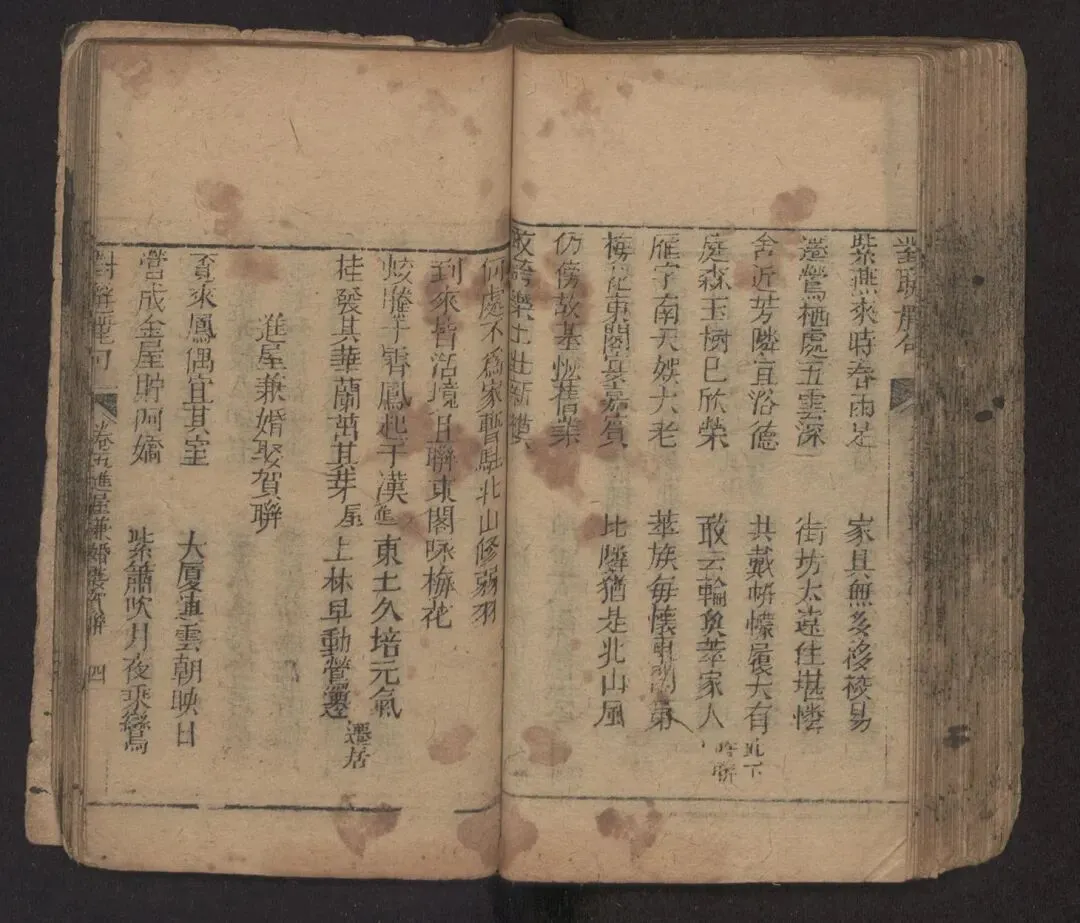 紫燕來時春雨足 家具無多移最易
遷鶯栖處五雲深 街坊太遠住堪憐
舍近芳隣宜浴德 共戴帡幪履大有
庭森玉樹已欣榮 敢云輪奐萃家人
雁字南天娛大老 華族每懷東閣第
梅花東閣宴嘉賓 比隣猶是北山風
仍傍故基恢舊業
樂土壯新
何處不爲家暫駐北山修弱羽
到來皆活境且聯東閣咏梅花
蛟騰于霄鳳起于漢進 東土久培元氣
桂發其華蘭茁其芽屋 上林早動鶯遷 遷居
進屋兼婚娶賀聯
賚來鳳偶宜其室 大厦連雲朝映日
營成金屋貯阿嬌 紫簫吹月夜乘鸞
卷五進屋兼婚娶 四